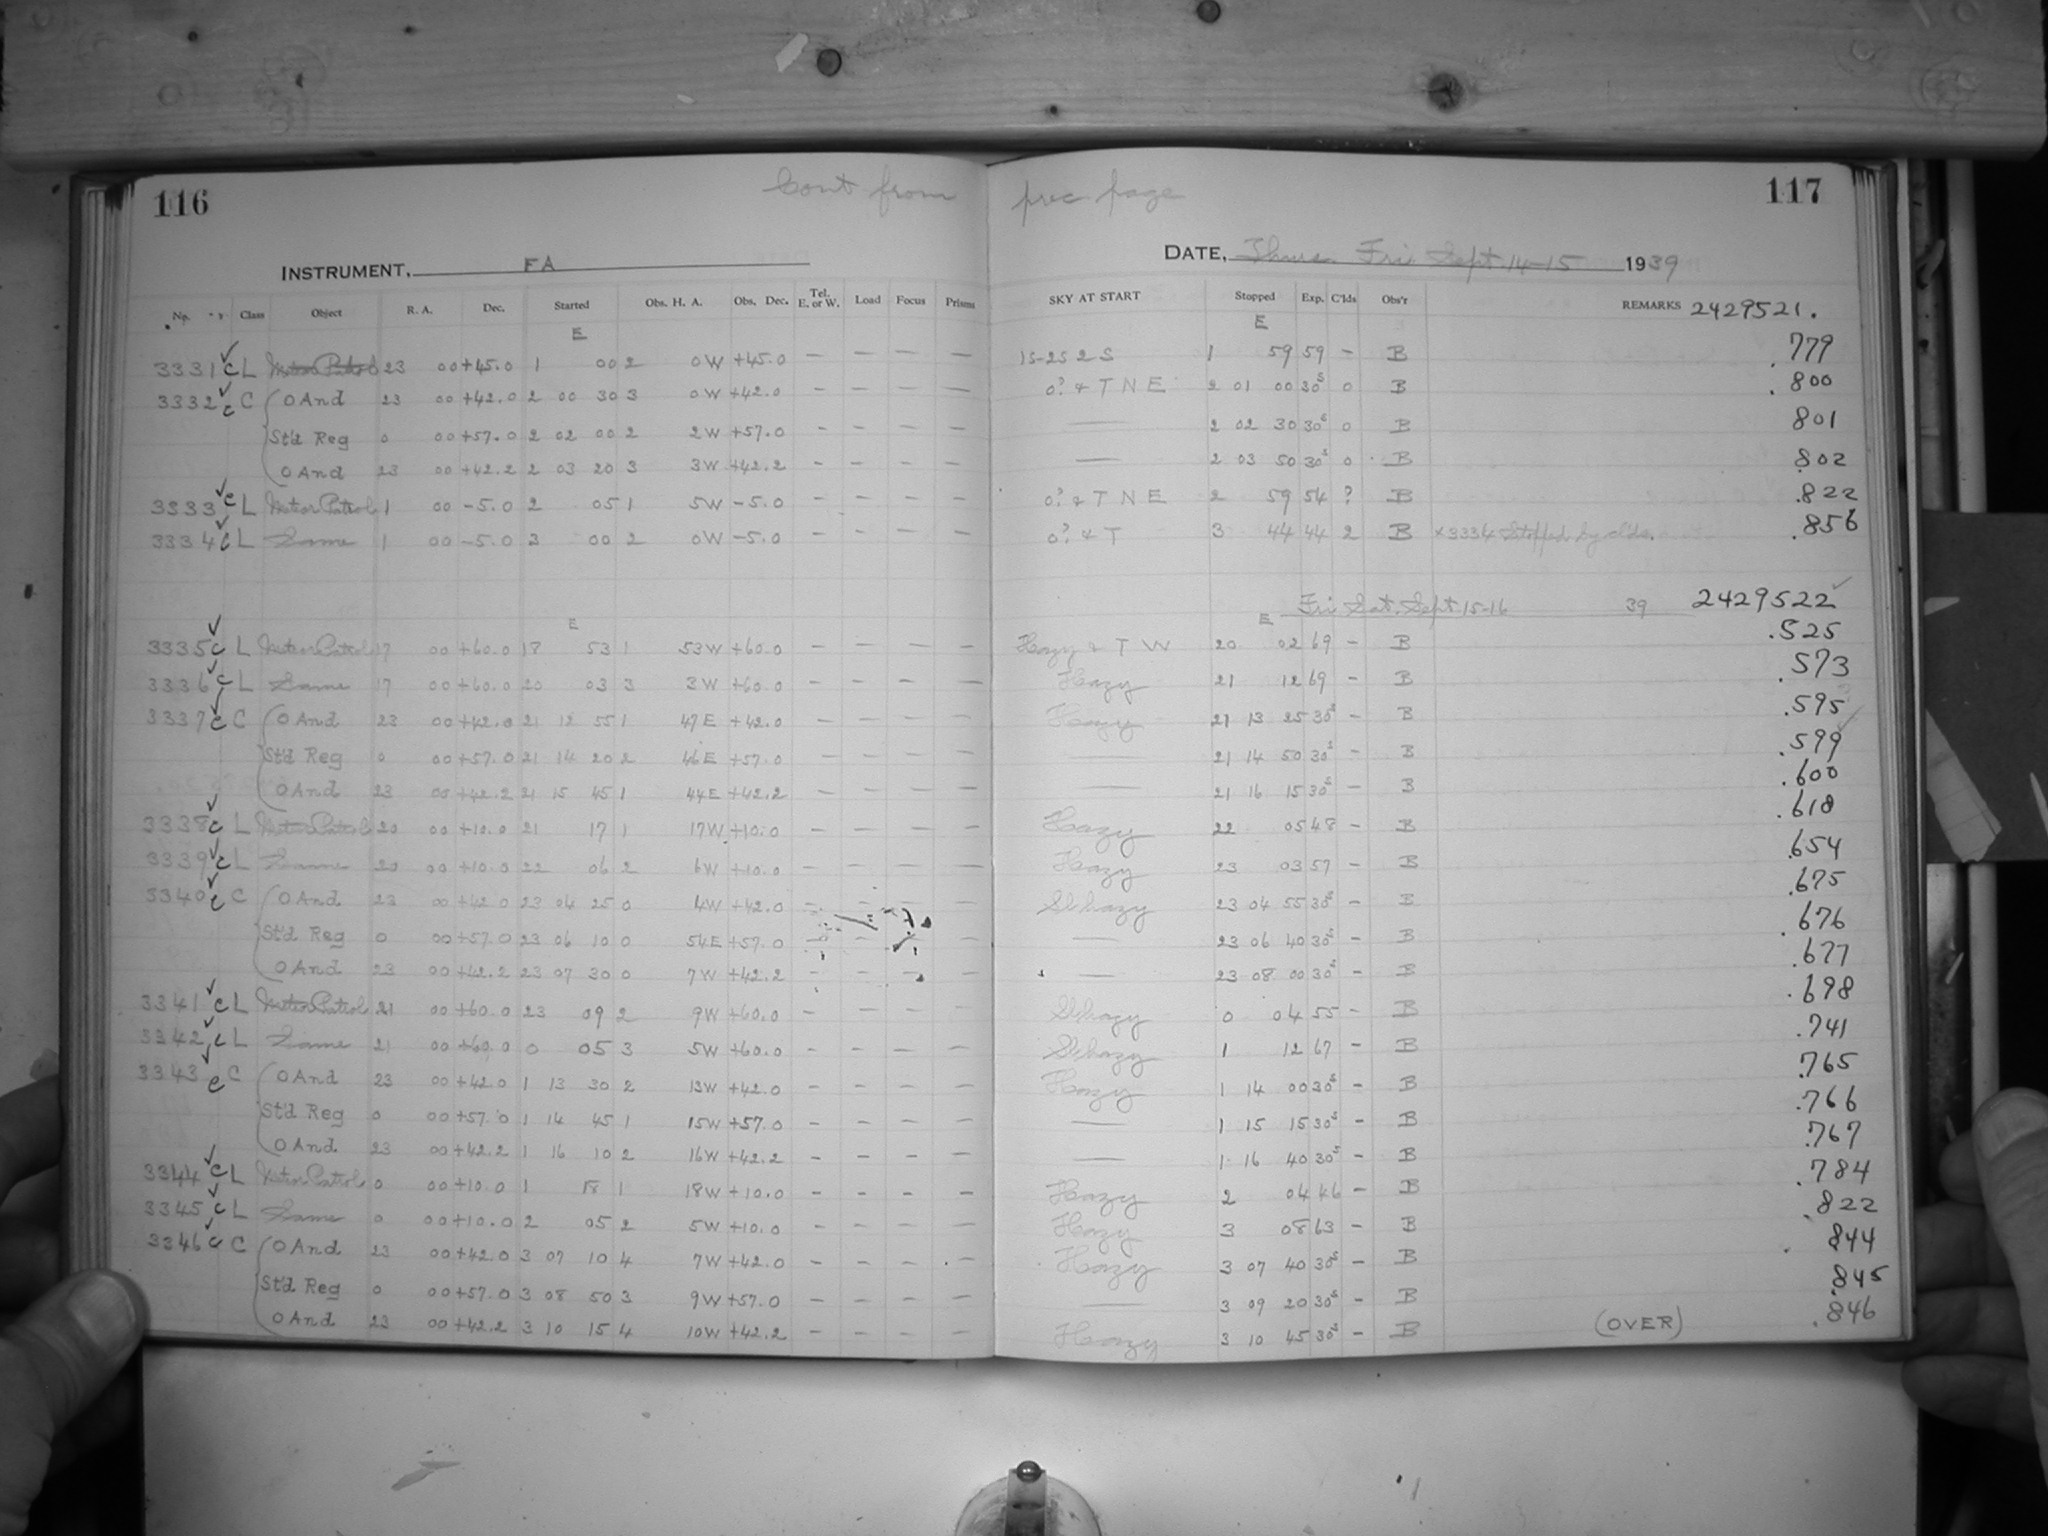 116 Cont from prec page 117
INSTRUMENT, FA DATE, Thurs. Fri Sept. 14-15 1939
No. Class Object R. A. Dec. Started Obs. H. A. Obs. Dec. Tel. E. or W. Load Focus Prisms SKY AT START Stopped Exp. C'lds Obs'r REMARKS 2429521.
E E
3331 c L Meteor Patrol 23 00 +45.0 1 00 2 0W +45.0 — — — — 15-25 2 S 1 59 59 - B .779
3332 c C O And 23 00 +42.0 2 00 30 3 0W +42.0 — — — — 0? & T N E 2 01 00 30s 0 B .800
Std Reg 0 00 +57.0 2 02 00 2 2W +57.0 — — — — — 2 02 30 30s 0 B 801
O And 23 00 +42.2 2 03 20 3 3W +42.2 — — — — — 2 03 50 30s 0 B .802
3333 c L Meteor Patrol 1 00 -5.0 2 05 1 5W -5.0 — — — — 0? & T N E 2 59 54 ? B .822
3334 c L Same 1 00 -5.0 3 00 2 0W -5.0 — — — — 0? & T 3 44 44 2 B x3334 Stopped by clds. .856
E E Fri Sat. Sept 15-16 39 2429522
3335 c L Meteor Patrol 17 00 +60.0 18 53 1 53W +60.0 — — — — Hazy & T W 20 02 69 - B .525
3336 c L Same 17 00 +60.0 20 03 3 3W +60.0 — — — — Hazy 21 12 69 - B .573
3337 c C O And 23 00 +42.0 21 12 55 1 47E +42.0 — — — — Hazy 21 13 25 30s - B .595
Std Reg 0 00 +57.0 21 14 20 2 46E +57.0 — — — — — 21 14 50 30s - B .599
O And 23 00 +42.2 21 15 45 1 44E +42.2 — — — — — 21 16 15 30s - B .600
3338 c L Meteor Patrol 20 00 +10.0 21 17 1 17W +10.0 — — — — Hazy 22 05 48 - B .618
3339 c L Same 20 00 +10.0 22 06 2 6W +10.0 — — — — Hazy 23 03 57 - B .654
3340 c C O And 23 00 +42.0 23 04 25 0 4W +42.0 — — — — Sl hazy 23 04 55 30s - B .675
Std Reg 0 00 +57.0 23 06 10 0 54E +57.0 — — — — — 23 06 40 30s - B .676
O And 23 00 +42.2 23 07 30 0 7W +42.2 — — — — — 23 08 00 30s - B .677
3341 c L Meteor Patrol 21 00 +60.0 23 09 2 9W +60.0 — — — — Sl hazy 0 04 55 - B .698
3342 c L Same 21 00 +60.0 0 05 3 5W +60.0 — — — — Sl hazy 1 12 67 - B .741
3343 c C O And 23 00 +42.0 1 13 30 2 13W +42.0 — — — — Hazy 1 14 00 30s - B .765
Std Reg 0 00 +57.0 1 14 45 1 15W +57.0 — — — — — 1 15 15 30s - B .766
O And 23 00 +42.2 1 16 10 2 16W +42.2 — — — — — 1 16 40 30s - B .767
3344 c L Meteor Patrol 0 00 +10.0 1 18 1 18W +10.0 — — — — Hazy 2 04 46 - B .784
3345 c L Same 0 00 +10.0 2 05 2 5W +10.0 — — — — Hazy 3 08 63 - B .822
3346 c C O And 23 00 +42.0 3 07 10 4 7W +42.0 — — — — Hazy 3 07 40 30s - B .844
Std Reg 0 00 +57.0 3 08 50 3 9W +57.0 — — — — — 3 09 20 30s - B .845
O And 23 00 +42.2 3 10 15 4 10W +42.2 — — — — Hazy 3 10 45 30s - B (OVER) .846